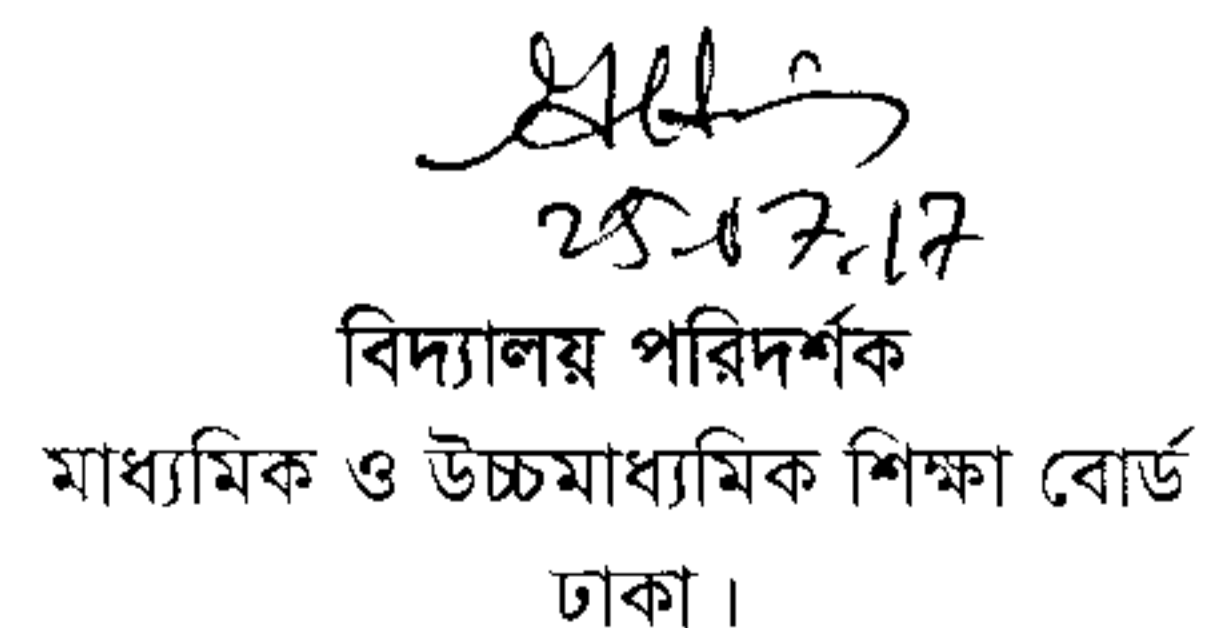 25.07.17
বিদ্যালয় পরিদর্শক
মাধ্যমিক ও উচ্চমাধ্যমিক শিক্ষা বোর্ড
ঢাকা ।